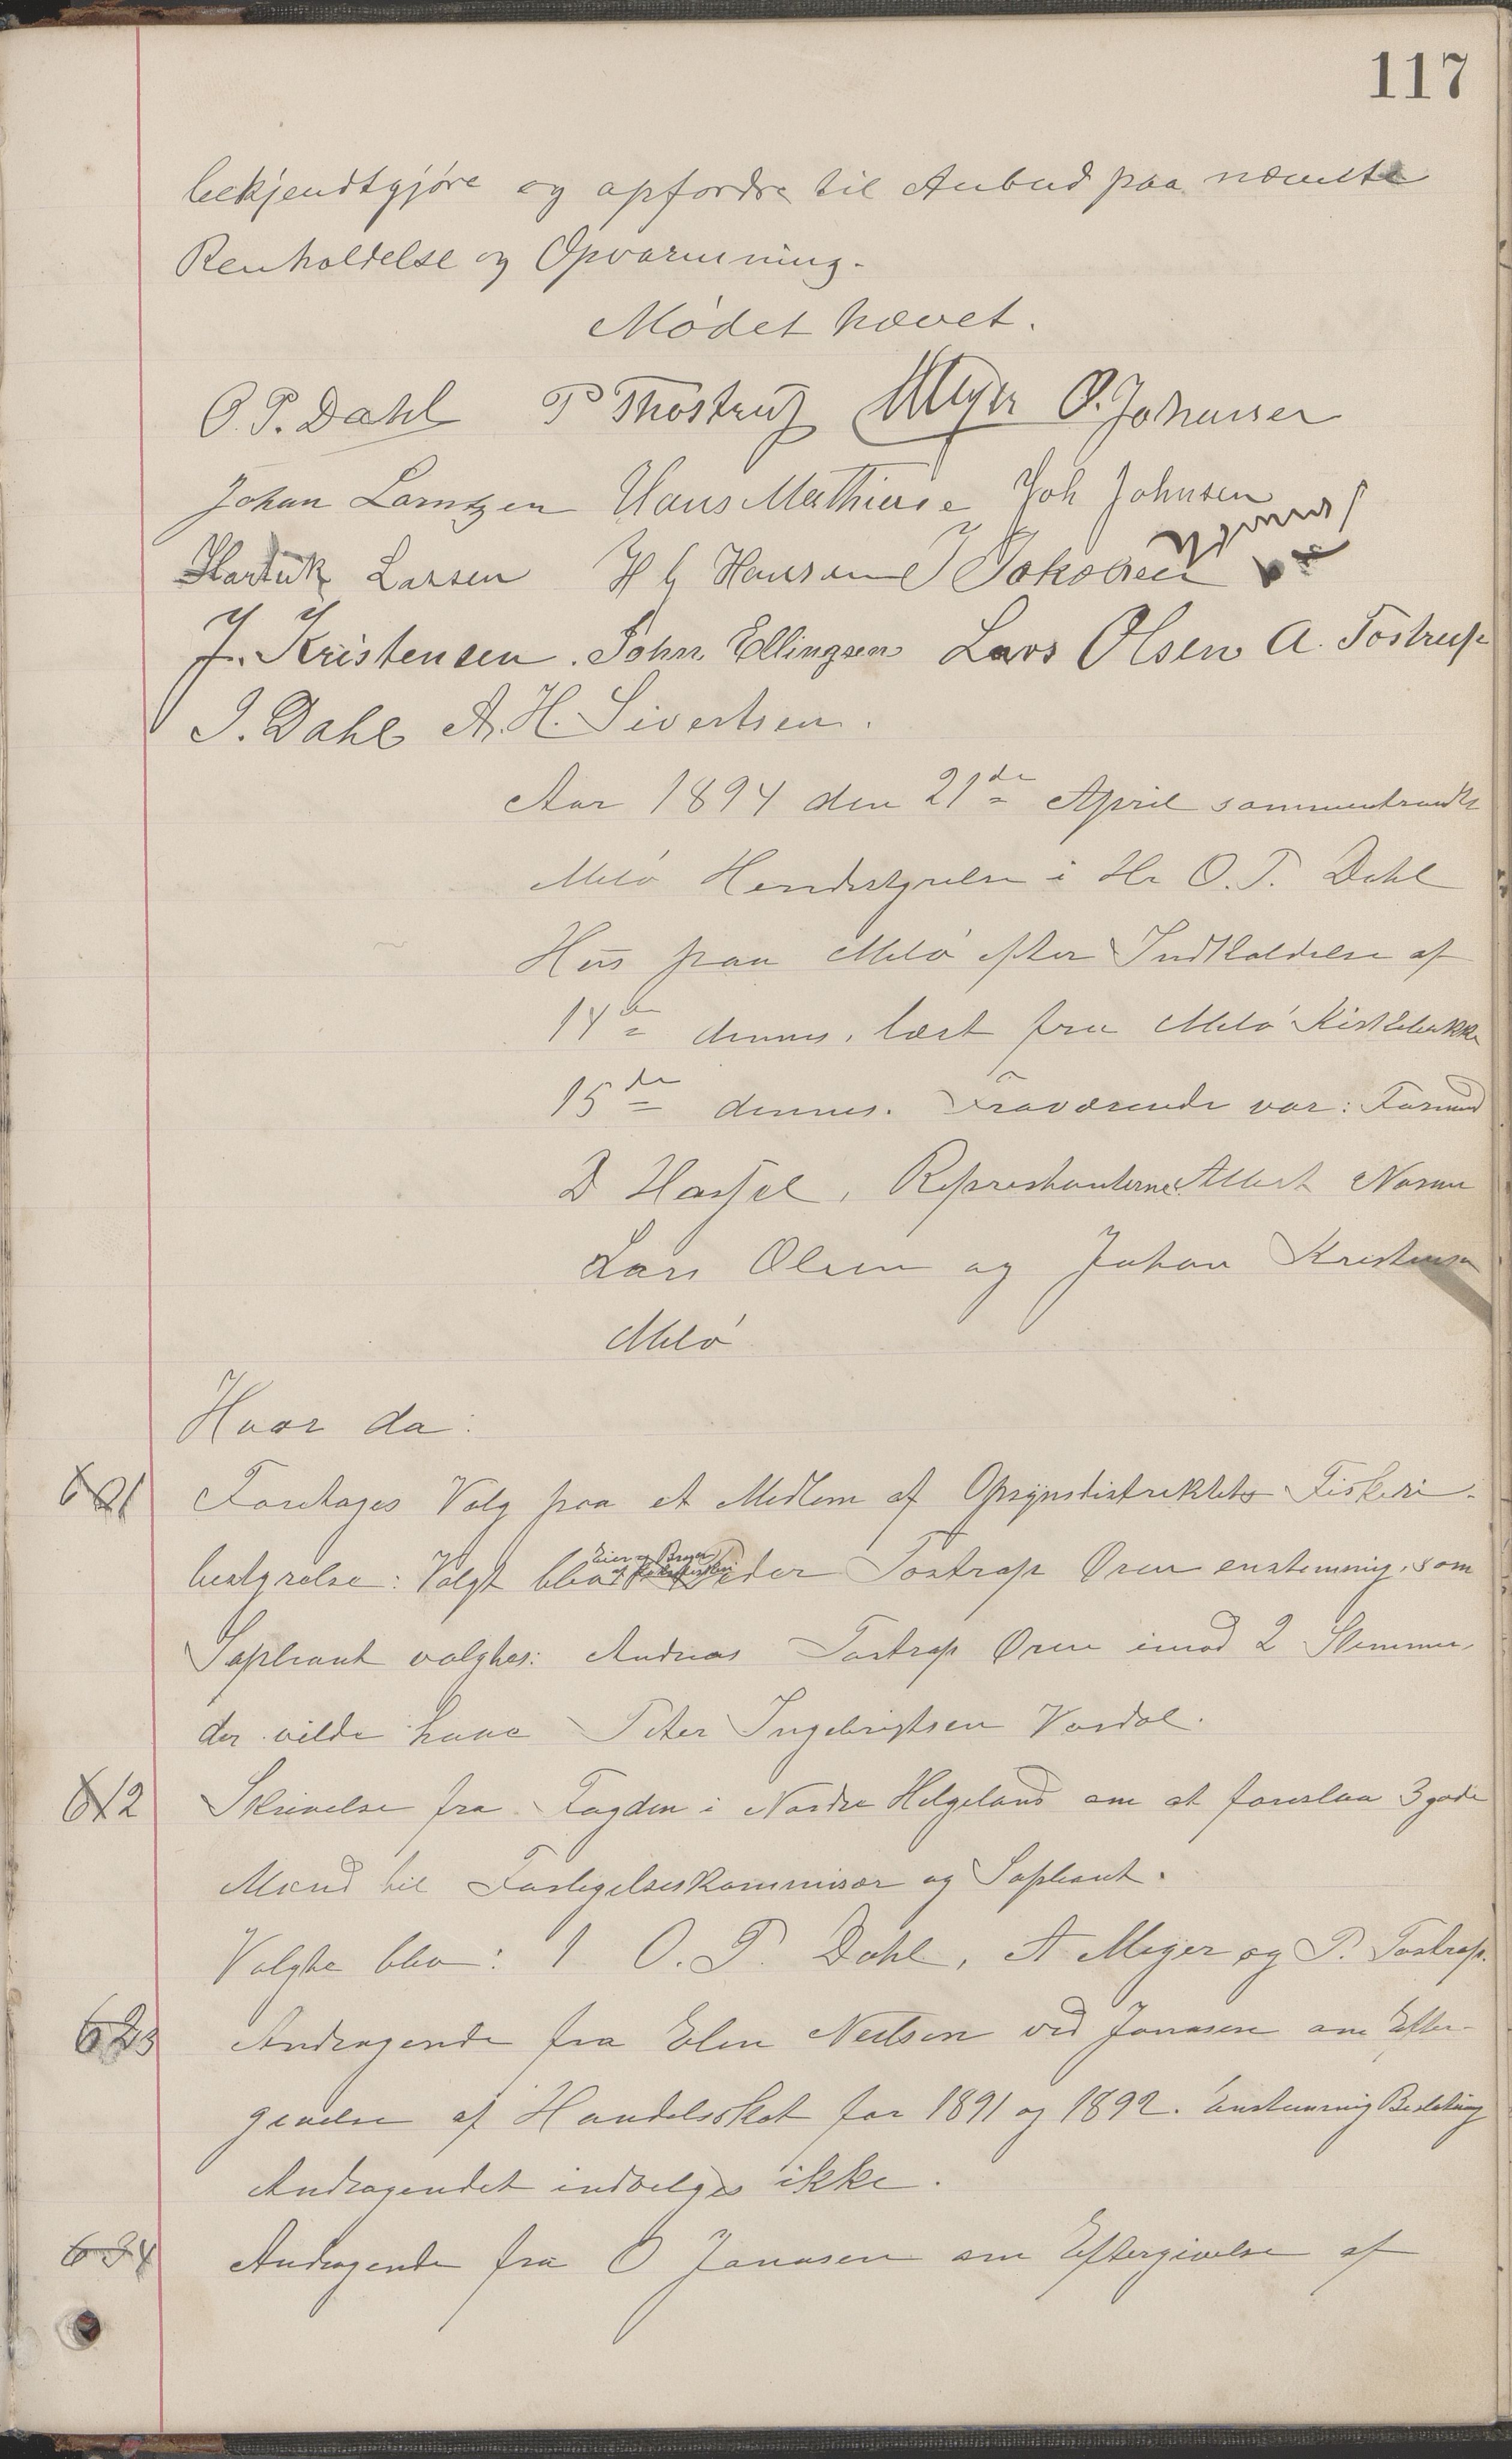 117
bekjendtgjøre og opfordre til Anbud paa nævnte
Renholdelse og Opvarmning.
Mødet hævet.
O. P. Dahl P Thostrup AMeyer O. Johansen
Johan Lorntzen Hans Mathiese Joh Johnsen
Hartvik Larsen H C Hansen J Jakobsen
J. Kristensen. John Ellingsen Lars Olsen A. Tostrup
I. Dahl A. H. Sivertsen.
Aar 1894 den 21de April sammentraadte
Melø Herredsstyrelse i Hr O. P. Dahl
Hus paa Melø efter Indkaldelse af
14de dennes, læst fra Melø Kirkebakke
15de dennes. Fraværende var: Formand
D Hastel, Representanterne Albert
Lars Olsen og Johan Kristensen
Melø
Hvor da:
1 Foretages Valg paa et Medlem af Opsynsdistriktets Fiskeri-
bestyrelse: Valgt blev Peder Tostrup Øren enstemmig, som
Eier og Bruger
Supleant valgtes: Andreas Tostrup Øren imod 2 Stemmer,
der vilde have Peter Ingebrigtsen Vardal.
2 Skrivelse fra Fogden i Nordre Helgeland om at foreslaa 3 gode
Mænd til Forligelseskommisær og Supleant.
Valgte blev: 1 O. P. Dahl, A Meyer og P. Tostrup.
3 Andragende fra Elen Neilsen ved Jonasen om Efter-
givelse af Handelsskat for 1891 og 1892. Enstemmig Beslutning
Andragendet indvilges ikke.
4 Andragende fra O Jonasen om Eftergivelse af